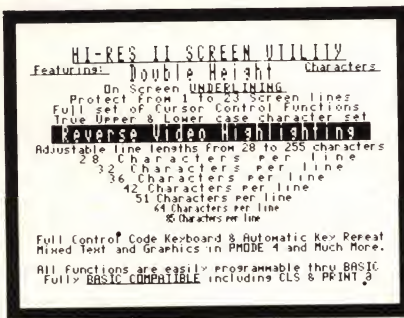 HI-RES II SCREEN UTILITY
Featuring: Double Height Characters
On Screen UNDERLINING
Protect from 1 to 23 Screen lines
Full set of Cursor Control Functions
True Upper & Lower case character set
Reverse Video Highlighting
Adjustable line lengths from 28 to 255 characters
28 Characters per line
32 Characters per line
36 Characters per line
42 Characters per line
51 Characters per line
64 Characters per line
85 Characters per line
Full Control Code Keyboard & Automatic Key Repeat
Mixed Text and Graphics in PMODE 4 and Much More.
All functions are easily programmable thru BASIC
Fully BASIC COMPATIBLE including CLS & PRINT @